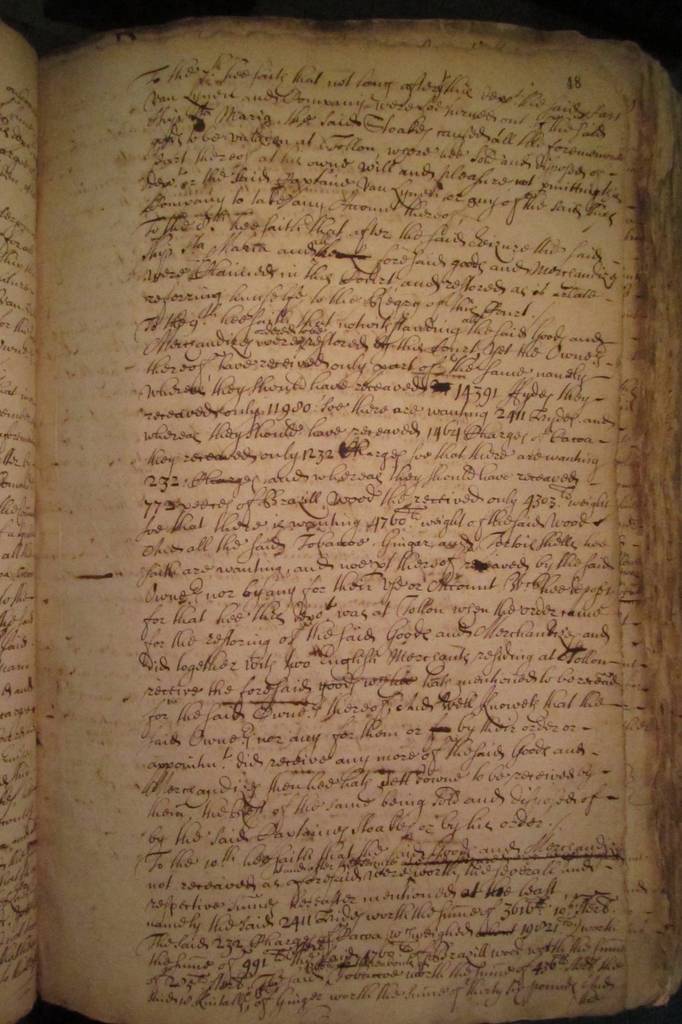 48
To the 7th hee saith that not long after this depo:t the said Capt
Van Lynen and Company were soe turned out of the said
ship Sta Maria, the said Stoakes caused all the forementioned
goods to be at Tollon, where hee sold and disposed of
part thereof at his owne will and pleasure not permitting this
depo:t or the said Captaine Van Lynen or any of the said ships
Company to take any Account thereof
To the 8th hee saith that after the said seizure the said
ship Sta Maria and the foresaid goods and Merchandizes
were claimed in this Court, and restored as is
referring himselfe to the Regry of this Court.
To the 9th hee saith that notwithstanding the said Goods and
Merchandizes were restored by this Court, yet the Owners
thereof have received only part of the same namely
whereas they should have receaved 14391 Hydes they
receaved only 11980 soe there are wanting 2411 Hydes and
whereas they should have receaved 1464 Charges of Cacoa
they receaved only 1232 Charges soe that there are wanting
232 Charges, and whereas they should have receaved
772 peeces of Brazill Wood they received only 4303 weight
soe that there is wanting 4760 weight of the said Wood
And all the said Tobaccoe, Ginger, and Tortoishells hee
saith are wanting, and noe part thereof receaved by the said
Owners nor by any for their Use or Account Wch hee deposeth
for that hee this depo:t was at Tollon when the order came
for the restoring of the said Goods and Merchandizes and
did together with two English Merchants residing at Tollon
receive the foresaid goods hath mentioned to be receaved
for the said Owners thereof, And Well knoweth that the
said Owners nor any for them or by their order or
appointmt did receive any more of the said Goods and
Merchandizes then hee hath sett downe to be received by
them, the rest of the same being sold and disposed of
by the said Captaine Stoakes or by his order.
To the 10th hee saith that the said Goods and Merchandizes
not receaved as foresaid were worth the severall and
respective summes hereafter mentioned at the least
namely the said 2411 Hydes worth the summe of 3616li 10s sterl
The said 232 Charges of Cacoa weighed worth
the summe of 491 The said 4760 of Brazill wood worth the summe
of sterl The said Tobaccoe worth the summe of 436li sterl the
said Kintalls of Ginger worth the summe of thirty six pounds And
the